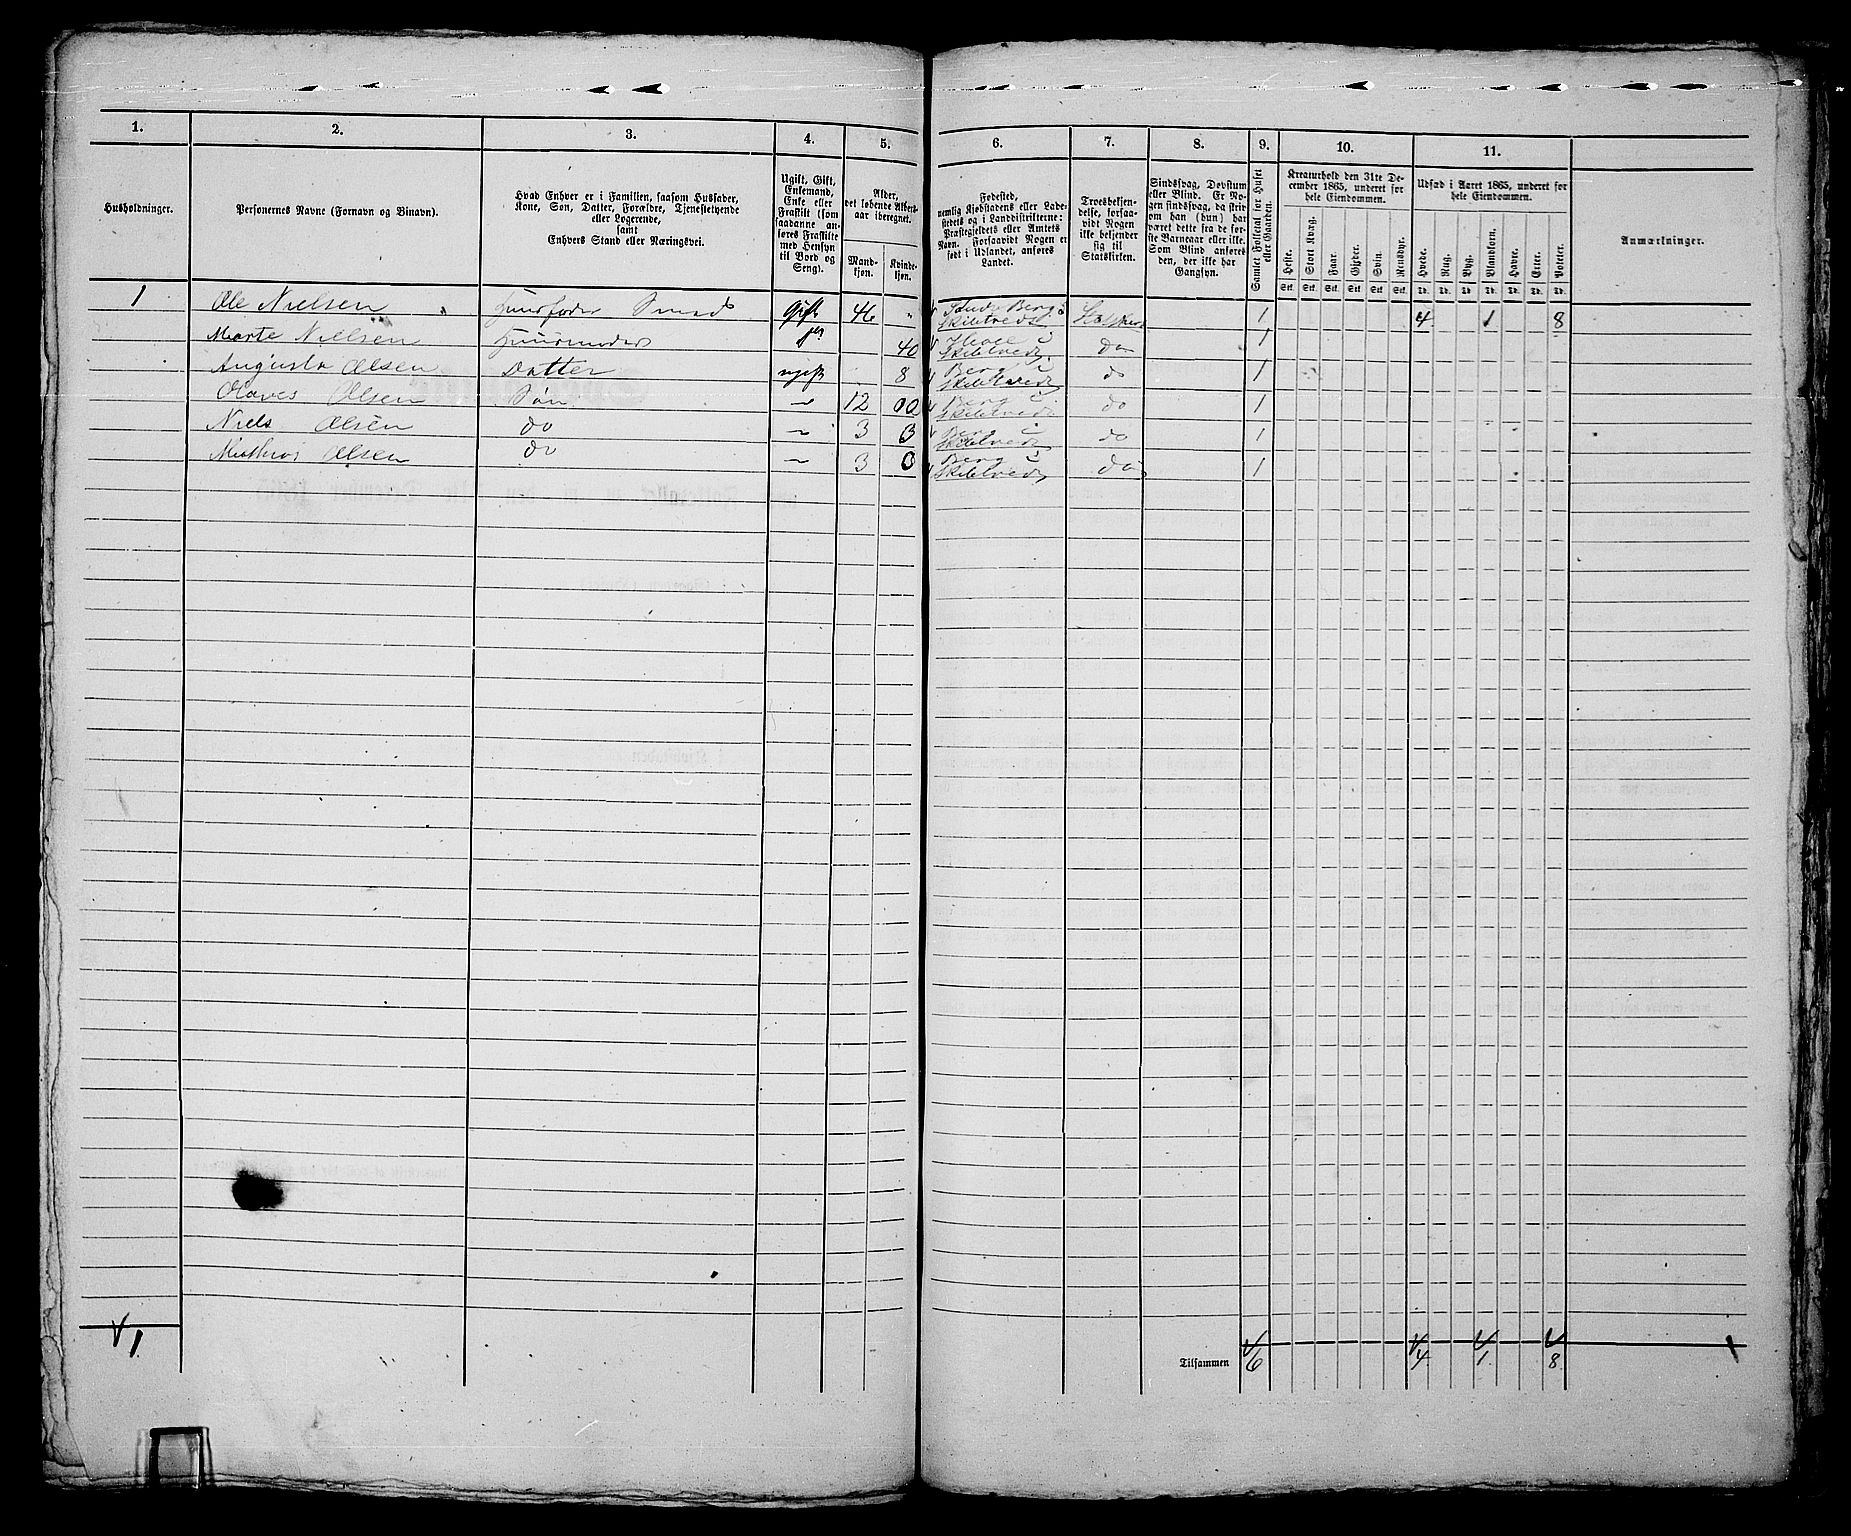 1. 2. 3. 4. 5. 6. 7. 8. 9. 10. 11.
Husholdninger.
Personernes Navne (Fornavn og Binavn).
Hvad Enhver er i Familien, saasom Husfader,
Kone, Søn, Datter, Forældre, Tjenestetyende
eller Logerende,
samt
Enhvers Stand eller Næringsvei.
Ugift, Gift,
Enkemand,
Enke eller
Fraskilt (som
saadanne an-
føres Fraskilte
med Hensyn
til Bord og
Seng).
Alder,
det løbende Alders-
aar iberegnet.
Mand-
kjøn.
Kvinde-
kjøn.
Fødested,
nemlig Kjøbstadens eller Lade-
stedets og i Landdistrikterne:
Præstegjeldets eller Amtets
Navn. Forsaavidt Nogen er
født i Udlandet, anføres
Landet.
Troesbekjen-
delse, forsaa-
vidt Nogen
ikke bekjender
sig til
Statskirken.
Sindssvag, Døvstum
eller Blind. Er No-
gen sindssvag, da skriv
om han (hun) har
været dette fra de før-
ste Barneaar eller ikke.
Som Blind anføres
den, der ikke har
Gangsyn.
Samlet Folketal for Huset
eller Gaarden.
Kreaturhold den 31te De-
cember 1865, underet for
hele Eiendommen.
Heste.
Stort Kvæg.
Faar.
Gjeder.
Svin.
Rensdyr.
Udsæd i Aaret 1865, underet for
hele Eiendommen.
Hvede.
Rug.
Byg.
Blandkorn.
Havre.
Erter.
Poteter.
Anmærkninger.
Stk. Stk. Stk. Stk. Stk. Stk. Td. Td. Td. Td. Td. Td. Td.
1 Ole Nielsen Huusfader Smed Gift 46 " 1 4 1 8
Marte Nielsen Huusmoder 40 do 1
Augusta Olsen Datter ugift 8 Berg i Skibtvedt do 1
Olaves Olsen Søn 12 Berg i Skibtvedt do 1
Niels Olsen do 3 Berg i Skibtvedt do 1
Olsen do 3 0 Berg i Skibtvedt do 1
1
Tilsammen 6 4 1 8